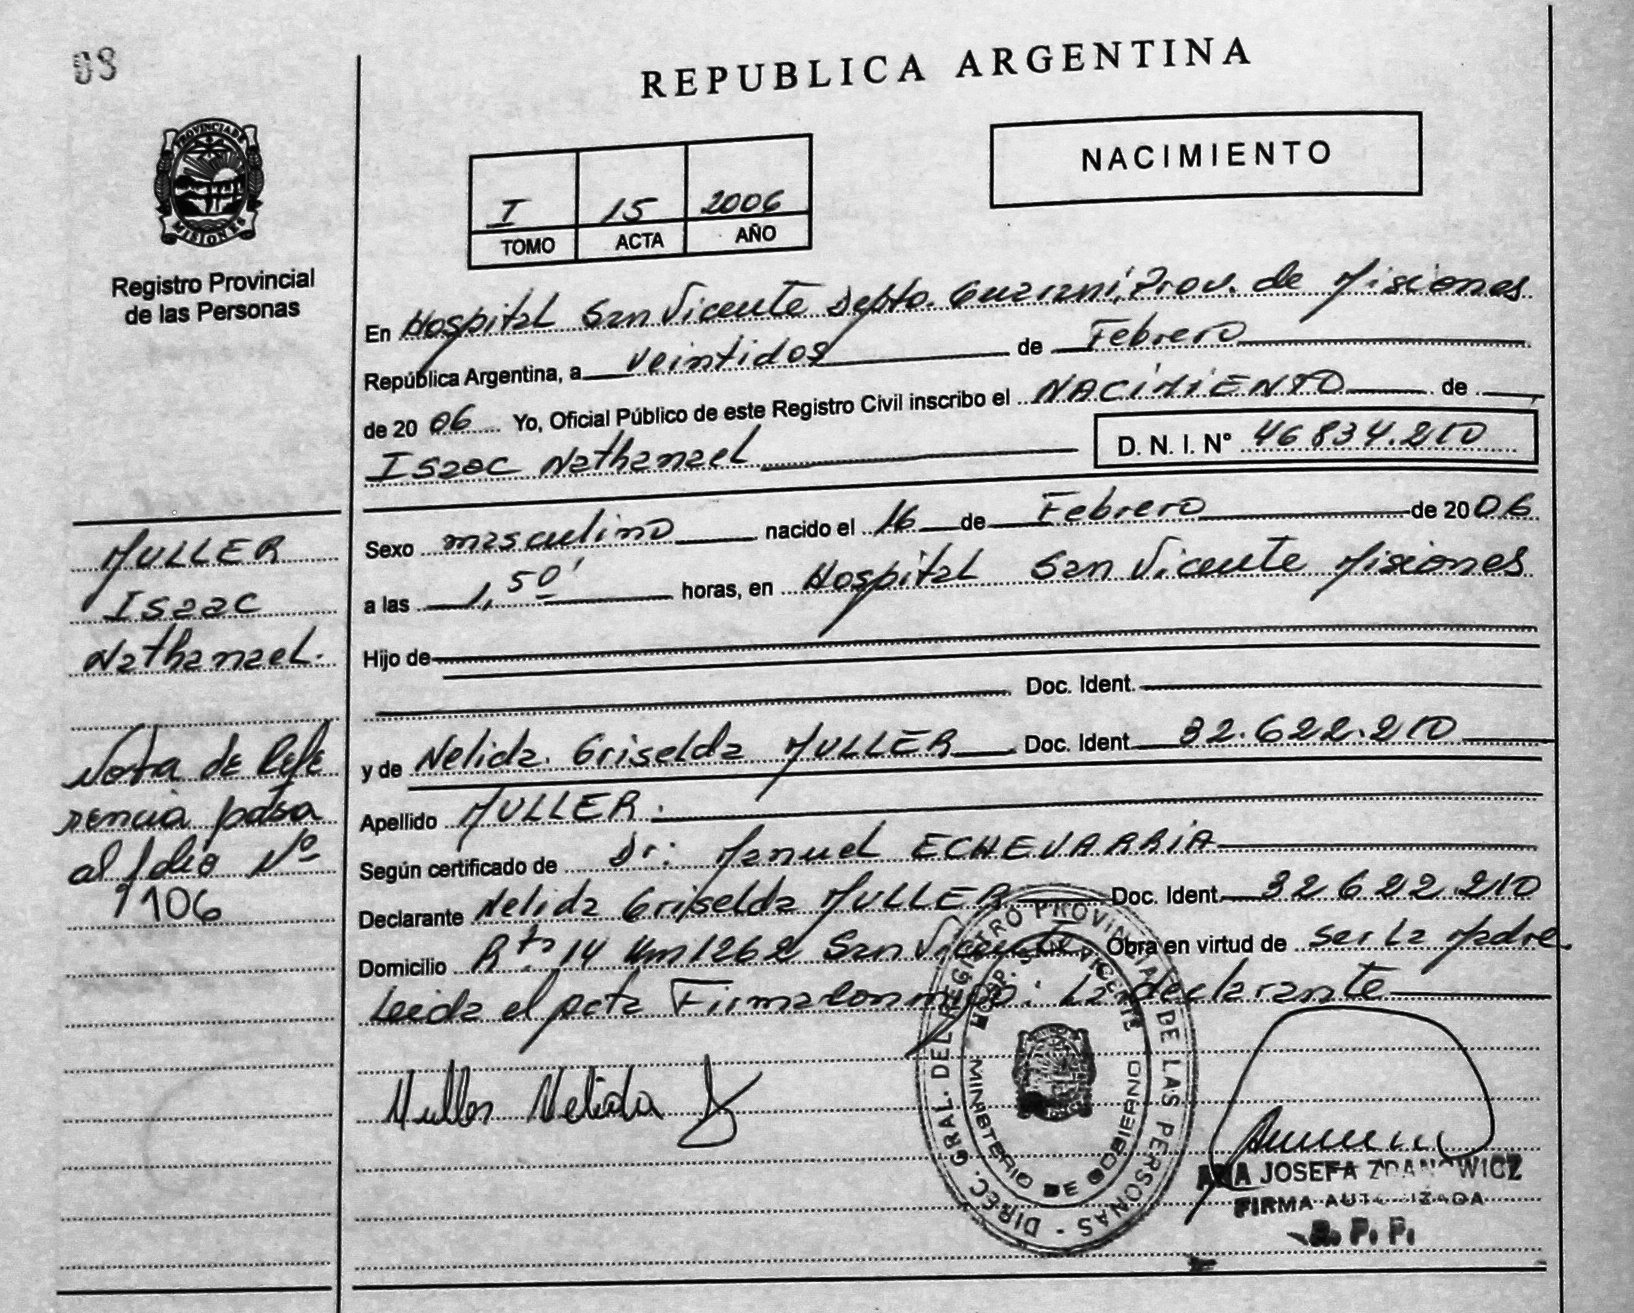 08
REPUBLICA ARGENTINA
PROVINCIA DE
MISIONES
Registro Provincial
de las Personas
I 15 2006
TOMO ACTA AÑO
NACIMIENTO
En Hospital San Vicente Depto. Guarani, Prov. de Misiones
República Argentina, a veintidos de Febrero
de 2006 Yo, Oficial Público de este Registro Civil inscribo el NACIMIENTO de
Isaac Nathanael D. N. I. N° 46.834.210
Sexo masculino nacido el 16 de Febrero de 2006
a las 1,50' horas, en Hospital San Vicente Misiones
Hijo de
Doc. Ident.
y de Nelida Griselda MULLER Doc. Ident. 32.622.210
Apellido MULLER.
Según certificado de Dr: Manuel ECHEVARRIA
Declarante Nelida Griselda MULLER Doc. Ident. 32.622.210
Domicilio Rta 14 Km 1262 San Vicente Obra en virtud de ser la Madre
Leida el acta Firma conmigo: La declarante
MULLER
Isaac
Nathanael.
Nota de Refe
rencia pasa
al folio Nº
106
Muller Nelida
DIREC. GRAL. DEL REGISTRO PROVINCIAL DE LAS PERSONAS -
HOSP. SAN VICENTE
MINISTERIO DE GOBIERNO
ANA JOSEFA ZDANOWICZ
FIRMA AUTORIZADA
R. P. P.